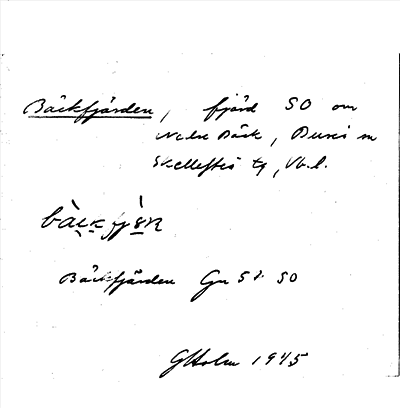 Bäckfjärden, fjärd SO om
Nedre Bäck, Bureå sn
Skellefteå tg, Vb. l.
Bäckfjärden Gn 51 SO
GHolm 1945